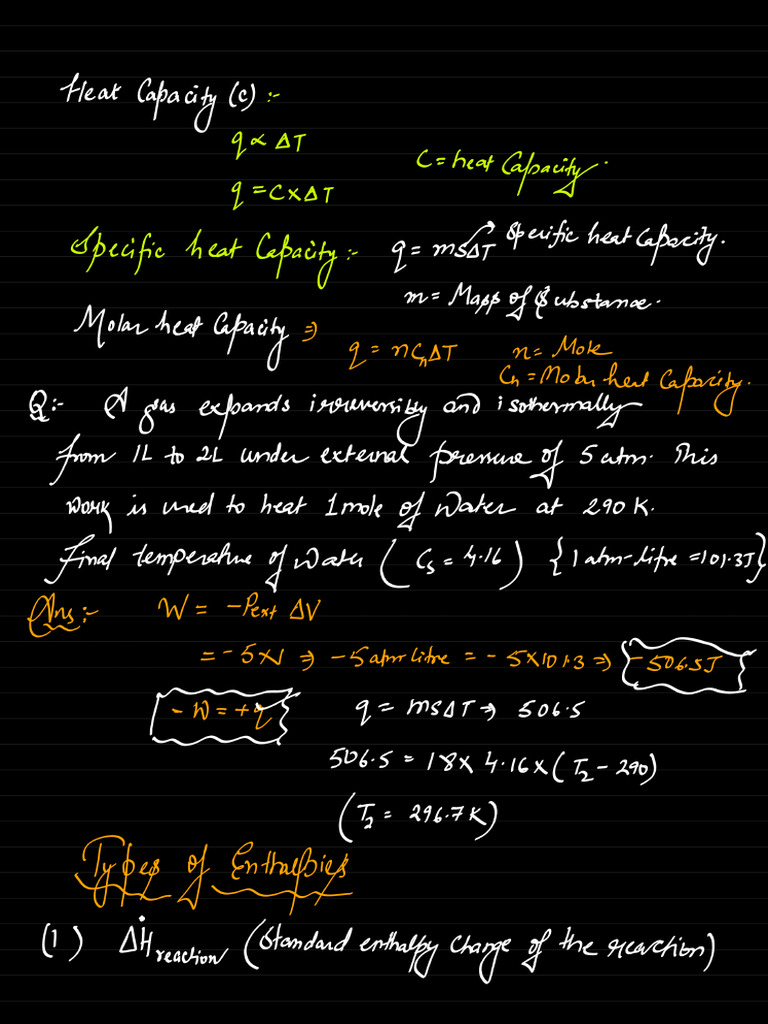 Heat Capacity (c) :-
q ∝ ΔT
C = heat Capacity.
q = C × ΔT
Specific heat Capacity :- q = msΔT → Specific heat Capacity.
m = Mass of Substance.
Molar heat Capacity ⇒ q = nCnΔT n = Mole
Cn = Molar heat Capacity.
Q:- A gas expands irreversibly and isothermally
from 1L to 2L under external pressure of 5 atm. This
work is used to heat 1 mole of Water at 290 K.
Final temperature of Water ( Cs = 4.16 ) { 1 atm-litre = 101.3J }
Ans:- W = -Pext ΔV
= -5×1 ⇒ -5 atm-litre = -5×101.3 ⇒ -506.5J
-W = +q q = msΔT → 506.5
506.5 = 18 × 4.16 × ( T2 - 290)
(T2 = 296.7 K)
Types of Enthalpies
(1) ΔH reaction (Standard enthalpy change of the reaction)